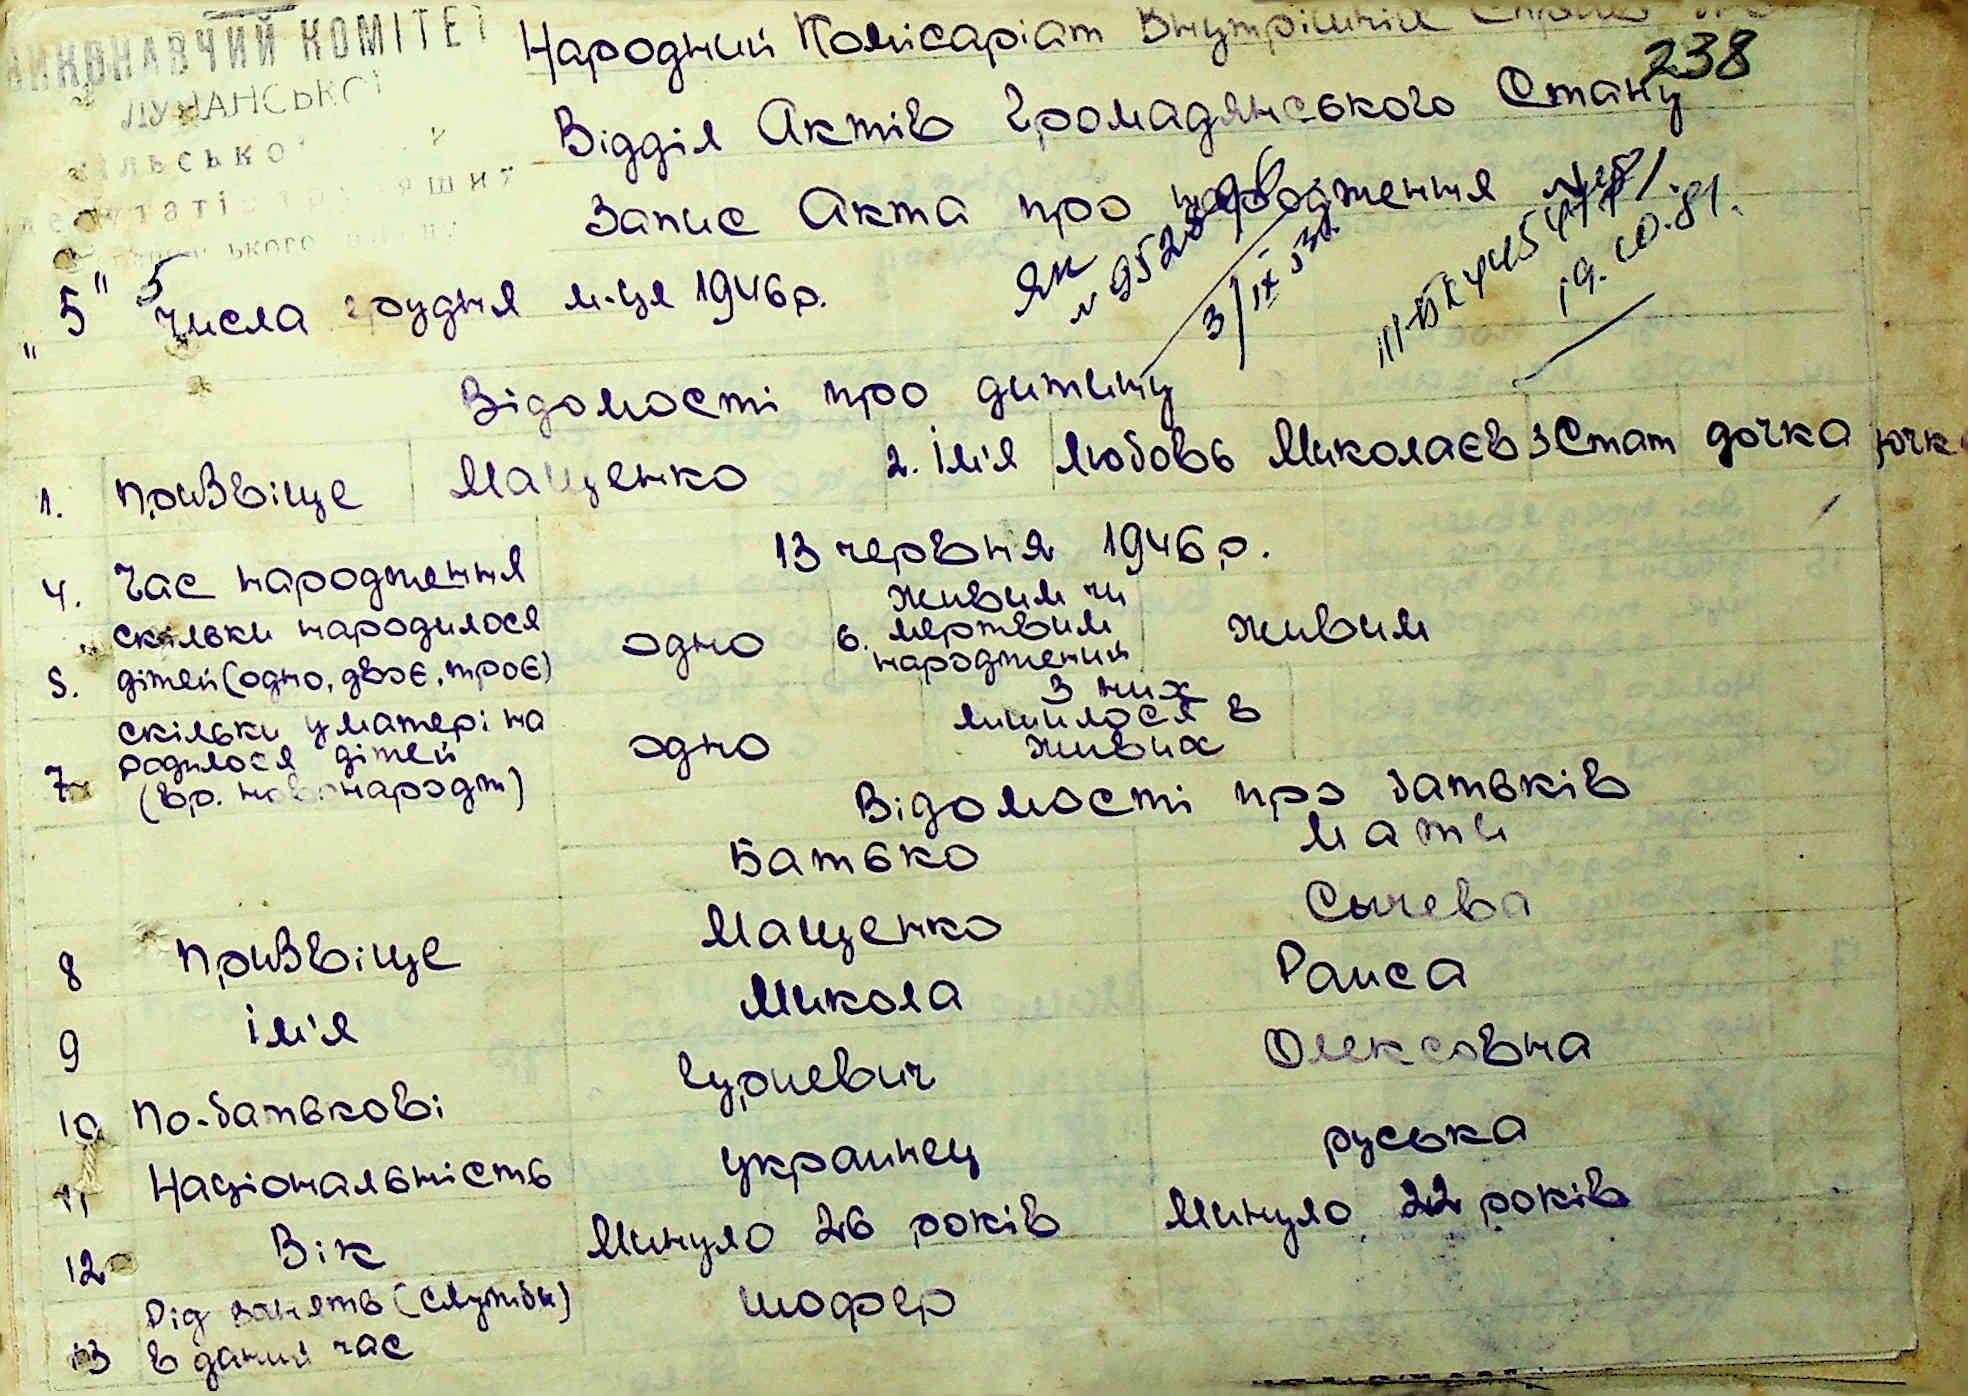 ВИКОНАВЧИЙ КОМІТЕТ
ЛУЧАНСЬКОЇ
238
Народний Комісаріат Внутрішніх Справ
Відділ Актів Громадянського Стану
Запис Акта про народження №
"5" 5 числа грудня м-ця 1946 р.
3/IX
19.10.81.
Відомості про дитину
1. Призвіще Мащенко 2. Ім'я Любовь Миколаєв 3 Стат дочка дочка
4. Час народження 13 червня 1946 р.
5. скільки народилося дітей (одно, двоє, троє) одно 6. живим чи мертвим народжений живим
7 скільки у матері народилося дітей (вр. новонародж) одно З них лишилося в живих
Відомості про батьків
Батько мати
8 Призвіще Мащенко Сычева
9 Ім'я Микола Раиса
10 По-батькові Гуриевич Олексовна
11 Національність украинец руська
12 Вік Минуло 26 років Минуло 22 років
13 Рід занять (служби) в даний час шофер